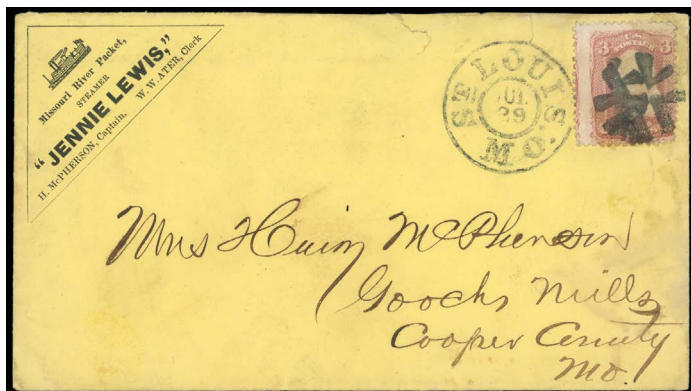 Missouri River Packet,
STEAMER
"JENNIE LEWIS,"
H. McPHERSON, Captain. W. W. ATER, Clerk
ST. LOUIS
JUL
29
MO.
U.S.
POSTAGE
3 3
Mrs McPherson
Goochs Mills
Cooper County
Mo.